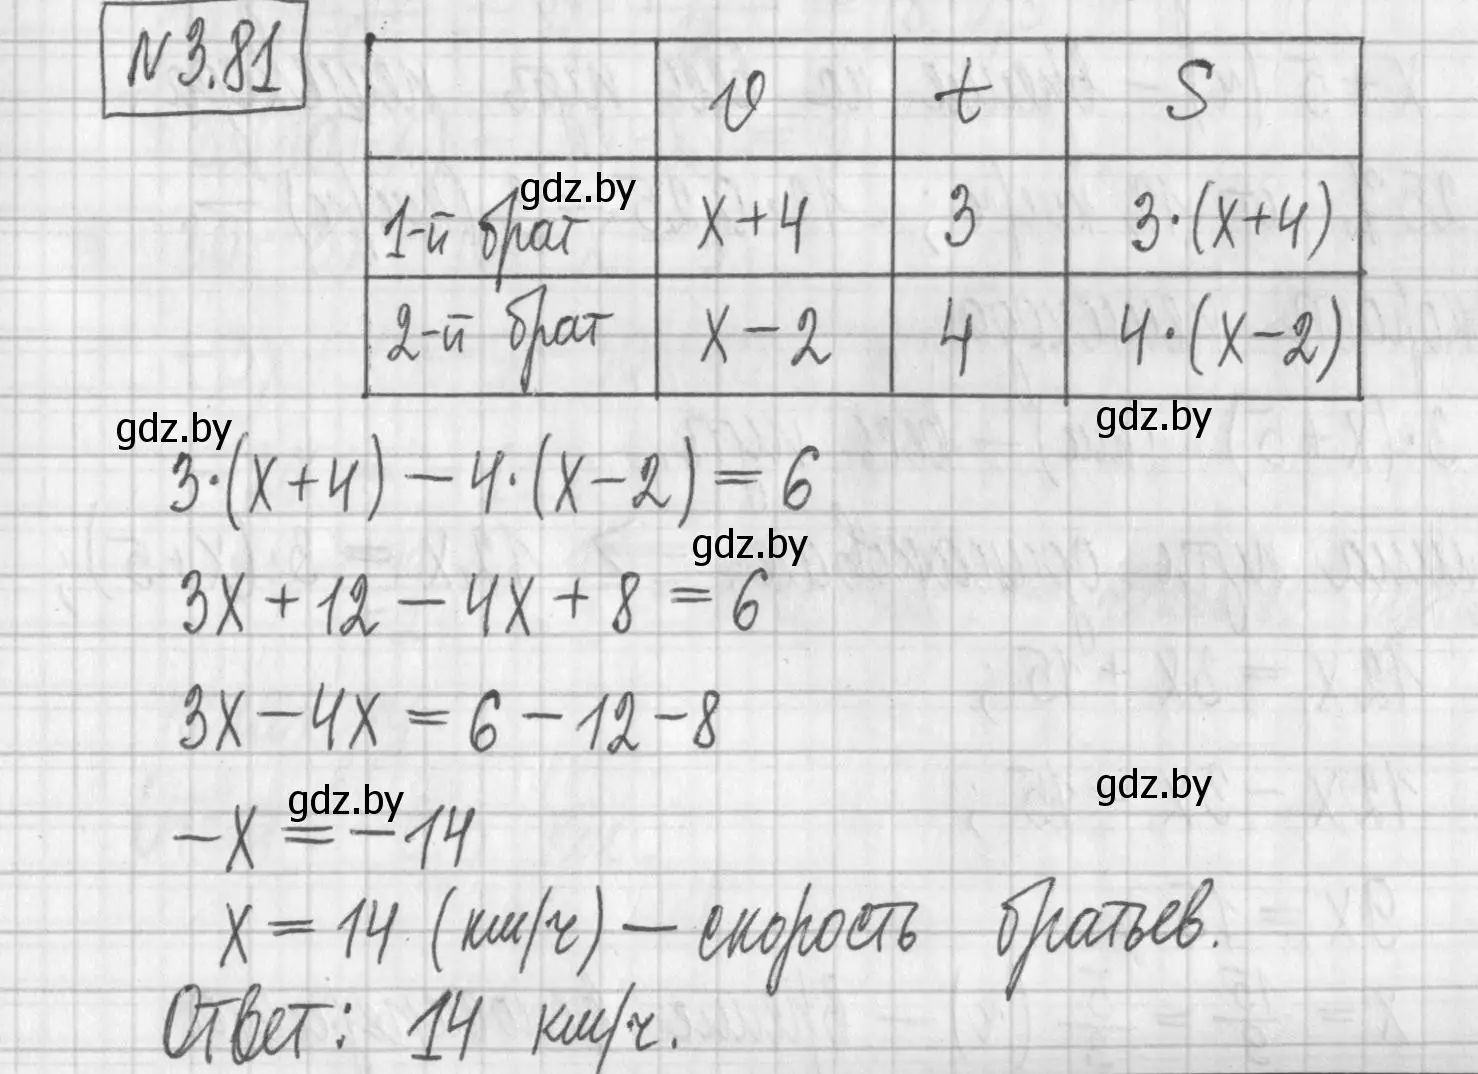 N 3.81
v t S
gdz.by
1-й брат x+4 3 3·(x+4)
2-й брат x-2 4 4·(x-2)
gdz.by gdz.by
3·(x+4) - 4·(x-2) = 6
gdz.by
3x + 12 - 4x + 8 = 6
3x - 4x = 6 - 12 - 8
gdz.by gdz.by
-x = -14
x = 14 (км/ч) - скорость братьев.
Ответ: 14 км/ч.